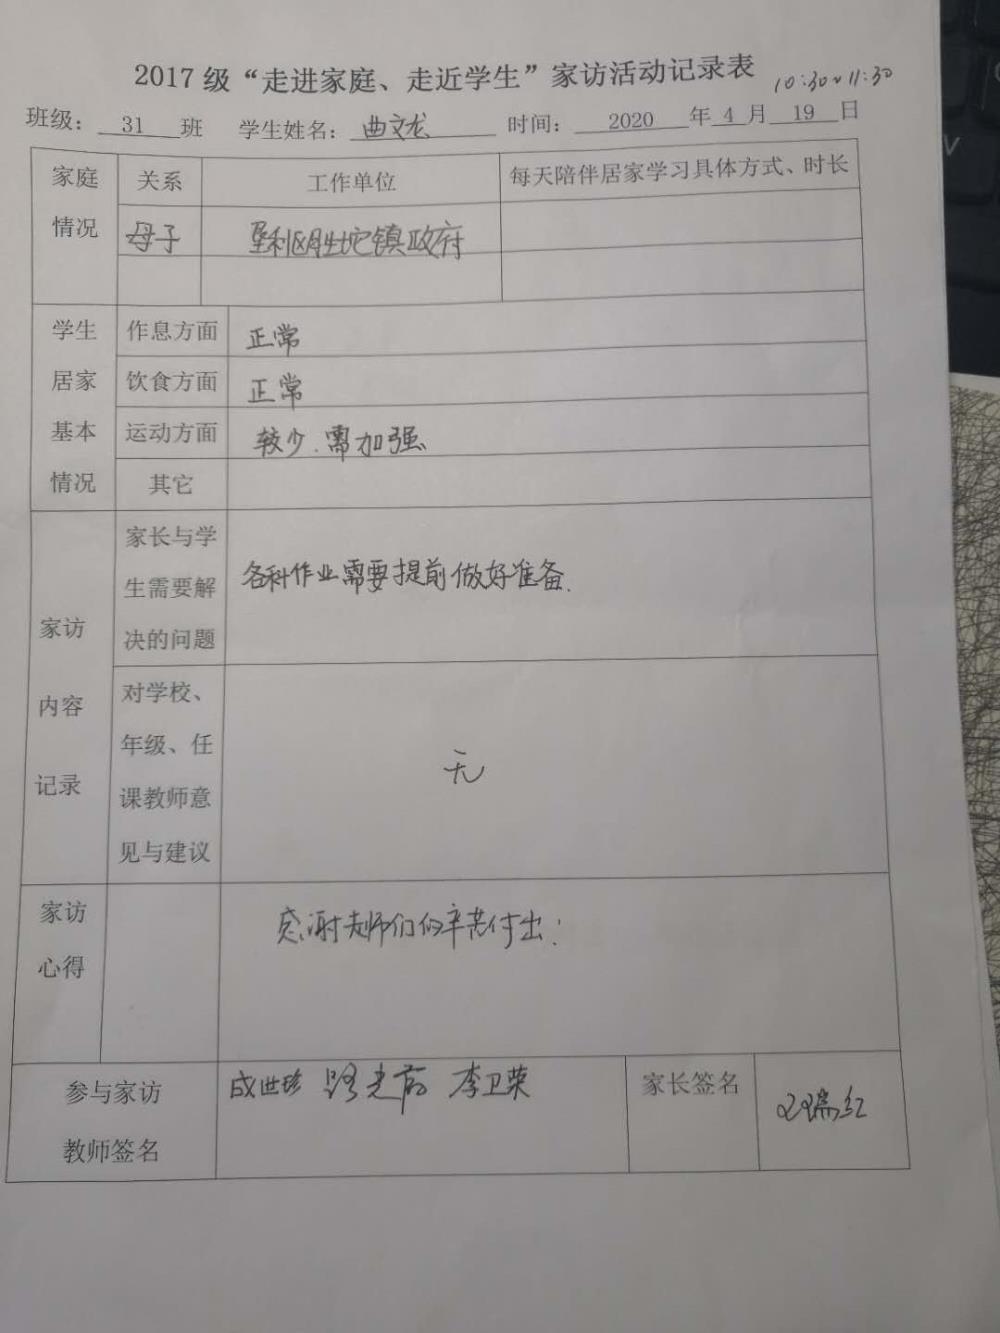 2017 级“走进家庭、走近学生”家访活动记录表 10:30~11:30
班级: 31 班 学生姓名: 曲文龙 时间: 2020 年 4 月 19 日
家庭
情况
关系 工作单位 每天陪伴居家学习具体方式、时长
母子 垦利区胜坨镇政府
学生
居家
基本
情况
作息方面 正常
饮食方面 正常
运动方面 较少.需加强
其它
家访
内容
记录
家长与学
生需要解
决的问题
各科作业需要提前做好准备.
对学校、
年级、任
课教师意
见与建议
无
家访
心得
感谢老师们的辛苦付出!
参与家访
教师签名
成世珍 路光前 李卫荣
家长签名
瑞红